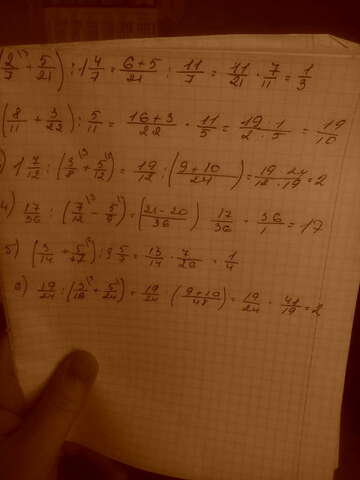 (2/7 + 5/21) : 1 4/7 = 6+5/21 : 11/7 = 11/21 · 7/11 = 1/3
(8/11 + 3/22) : 5/11 = 16+3/22 · 11/5 = 19·1/2·5 = 19/10
) 1 7/12 : (3/8 + 5/12) = 19/12 : (9+10/24) = 19·24/12·19 = 2
4) 17/36 : (7/12 - 5/9) = (21-20/36) 17/36 · 36/1 = 17
5) (3/14 + 5/7) : 3 5/7 = 13/14 · 7/26 = 1/4
19/24 : (3/16 + 5/24) = 19/24 (9+10/48) = 19/24 · 41/19 = 2